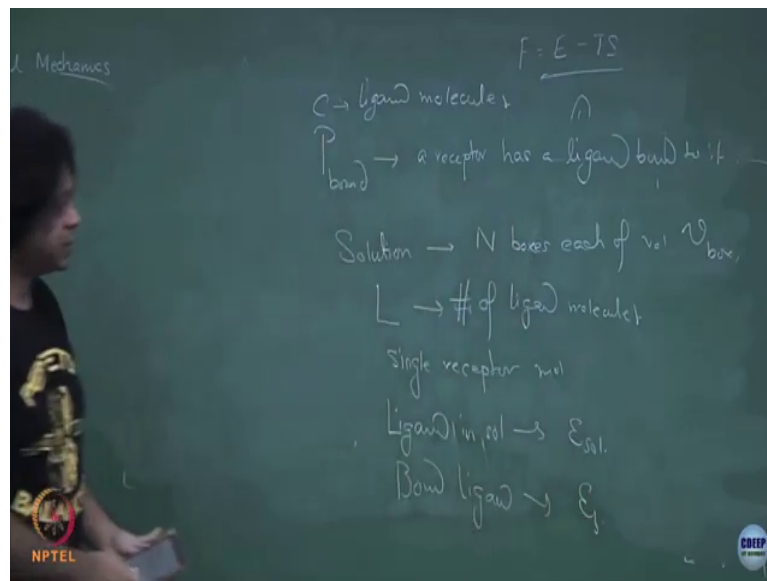 Mechanics
F = E - TS
C → ligand molecules
P bound → a receptor has a ligand bound to it
Solution → N boxes each of vol V box,
L → # of ligand molecules
single receptor mol
Ligand in sol → ε sol.
Bound ligand → ε
NPTEL
CDEEP
IIT BOMBAY